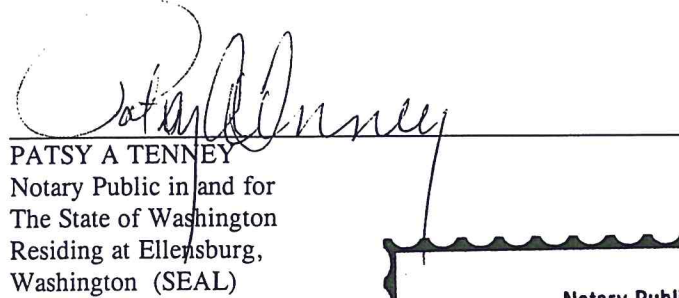 Patsy A Tenney
PATSY A TENNEY
Notary Public in and for
The State of Washington
Residing at Ellensburg,
Washington (SEAL)
Notary Publi